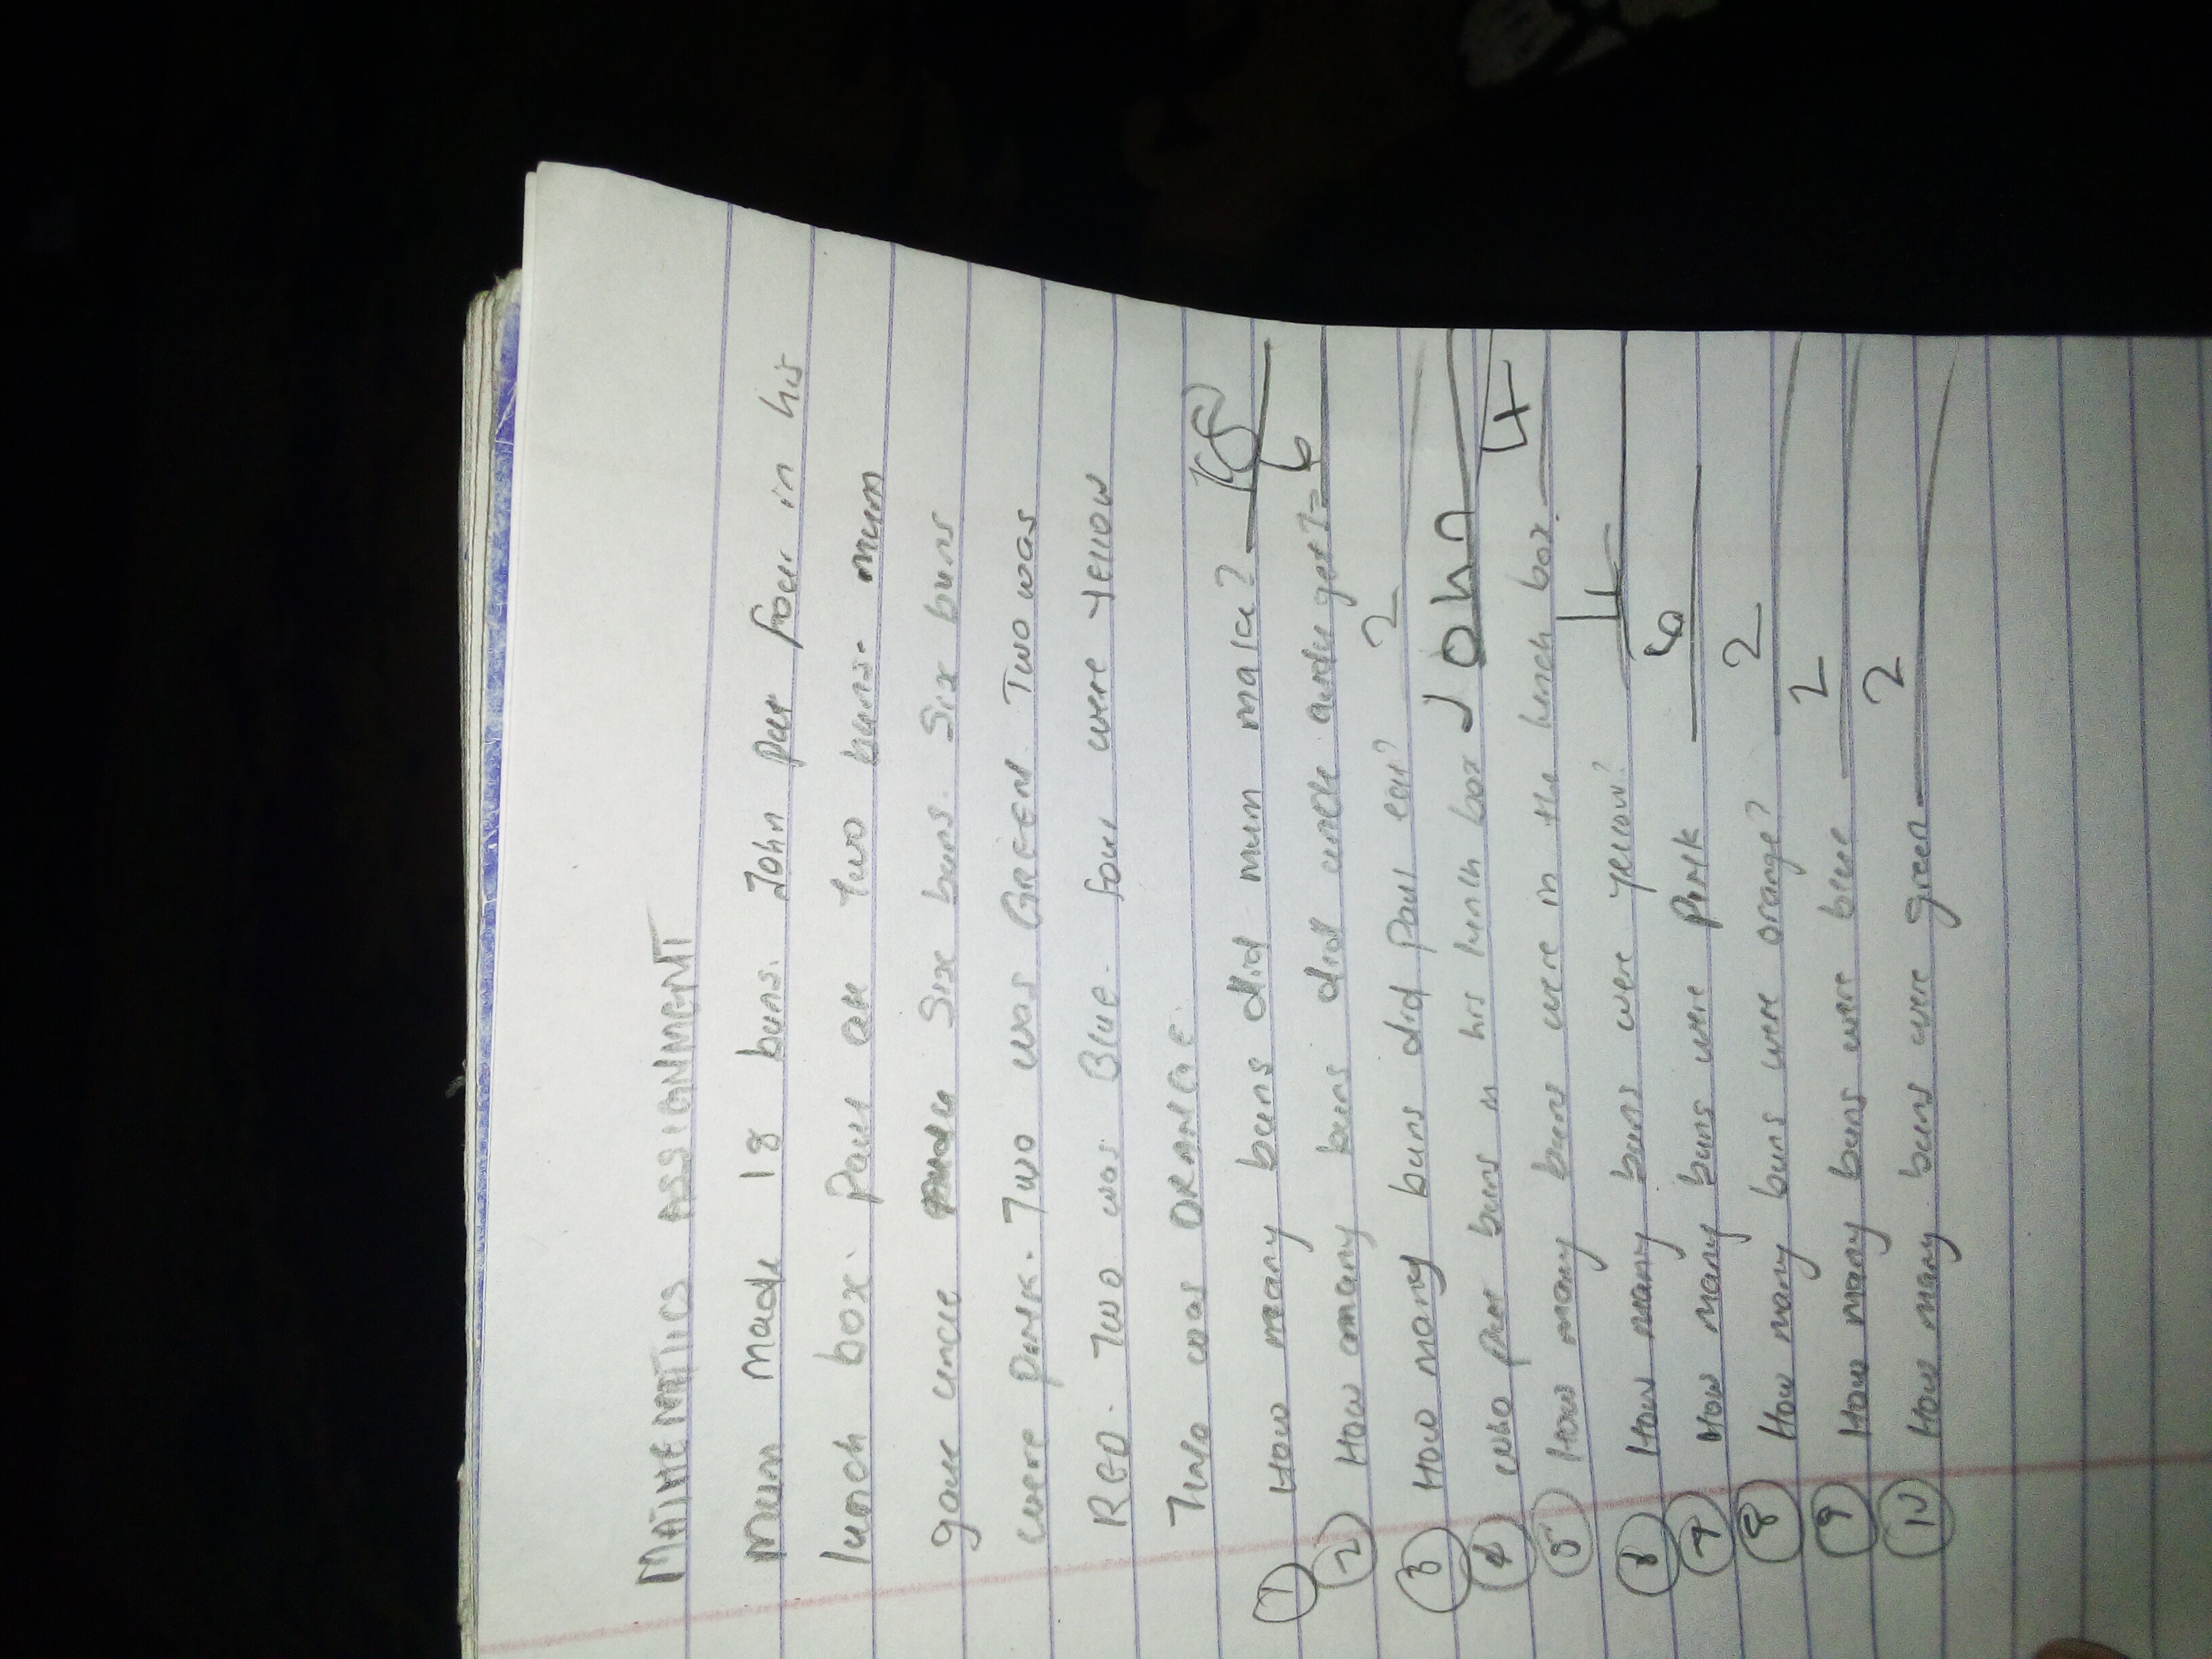 MATHEMATICS ASSIGNMENT
Mum made 18 buns. John put four in his
lunch box. Paul ate two buns. Mum
gave uncle Andy Six buns. Six buns
were Pink. Two was GREEN. Two was
RED. Two was Blue. four were Yellow
Two was ORANGE.
① How many buns did mum make? 18
② How many buns did uncle andy get? = 6
③ How many buns did Paul eat? 2
④ who put buns in his lunch box John
⑤ How many buns were in the lunch box. 4
⑥ How many buns were yellow? 4
⑦ How many buns were Pink 6
⑧ How many buns were orange? 2
⑨ How many buns were blue 2
⑩ How many buns were green 2